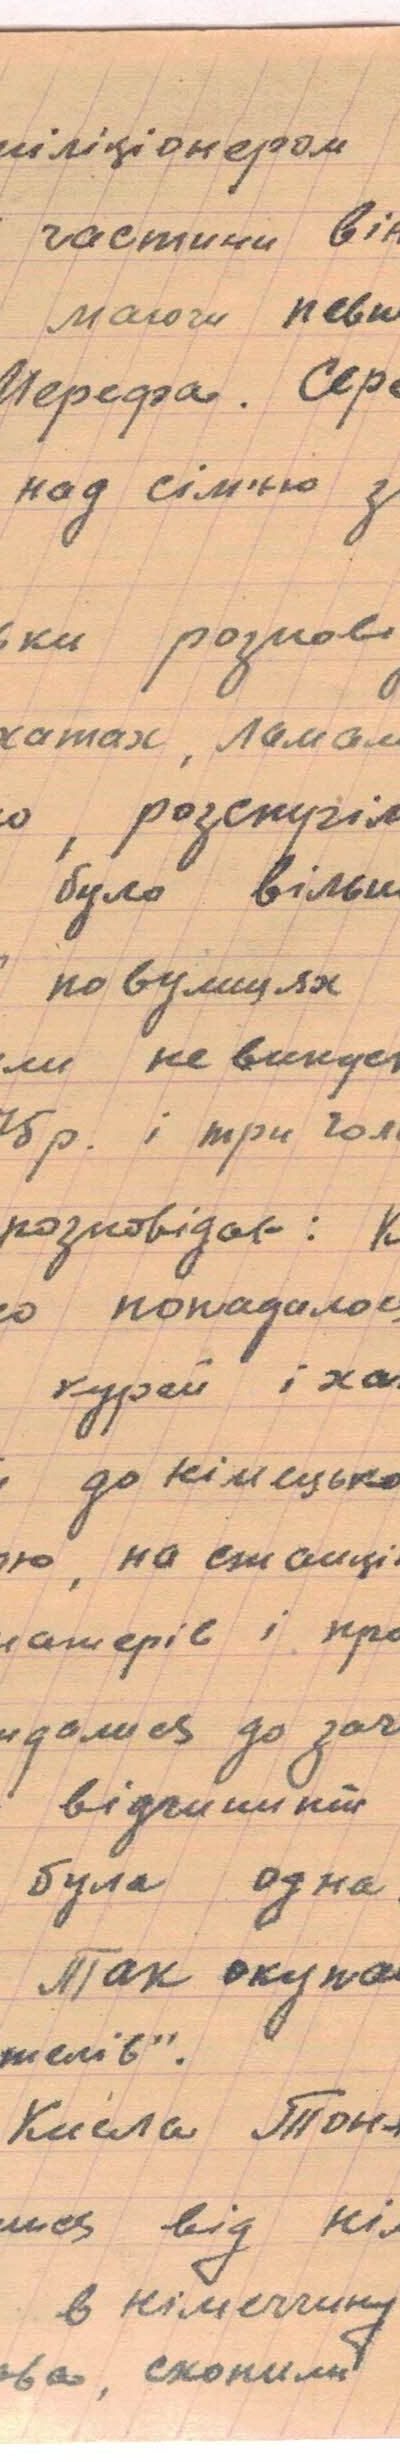 міліціонером
частини він
маючи певн
Мерефа. Сере
над сім'ю з
вки розпові
хатах, ламам
ю, розстріл
було вільн
по вулицях
ли не випус
45р. і три гол
розповідає: К
ю попадалос
курей і ха
до німецько
ю, на станці
матерів і про
идалися до зач
відчинит
була одна
Так окупа
телів".
Кисла Тон
лися від нім
в німеччину
ва, схопили